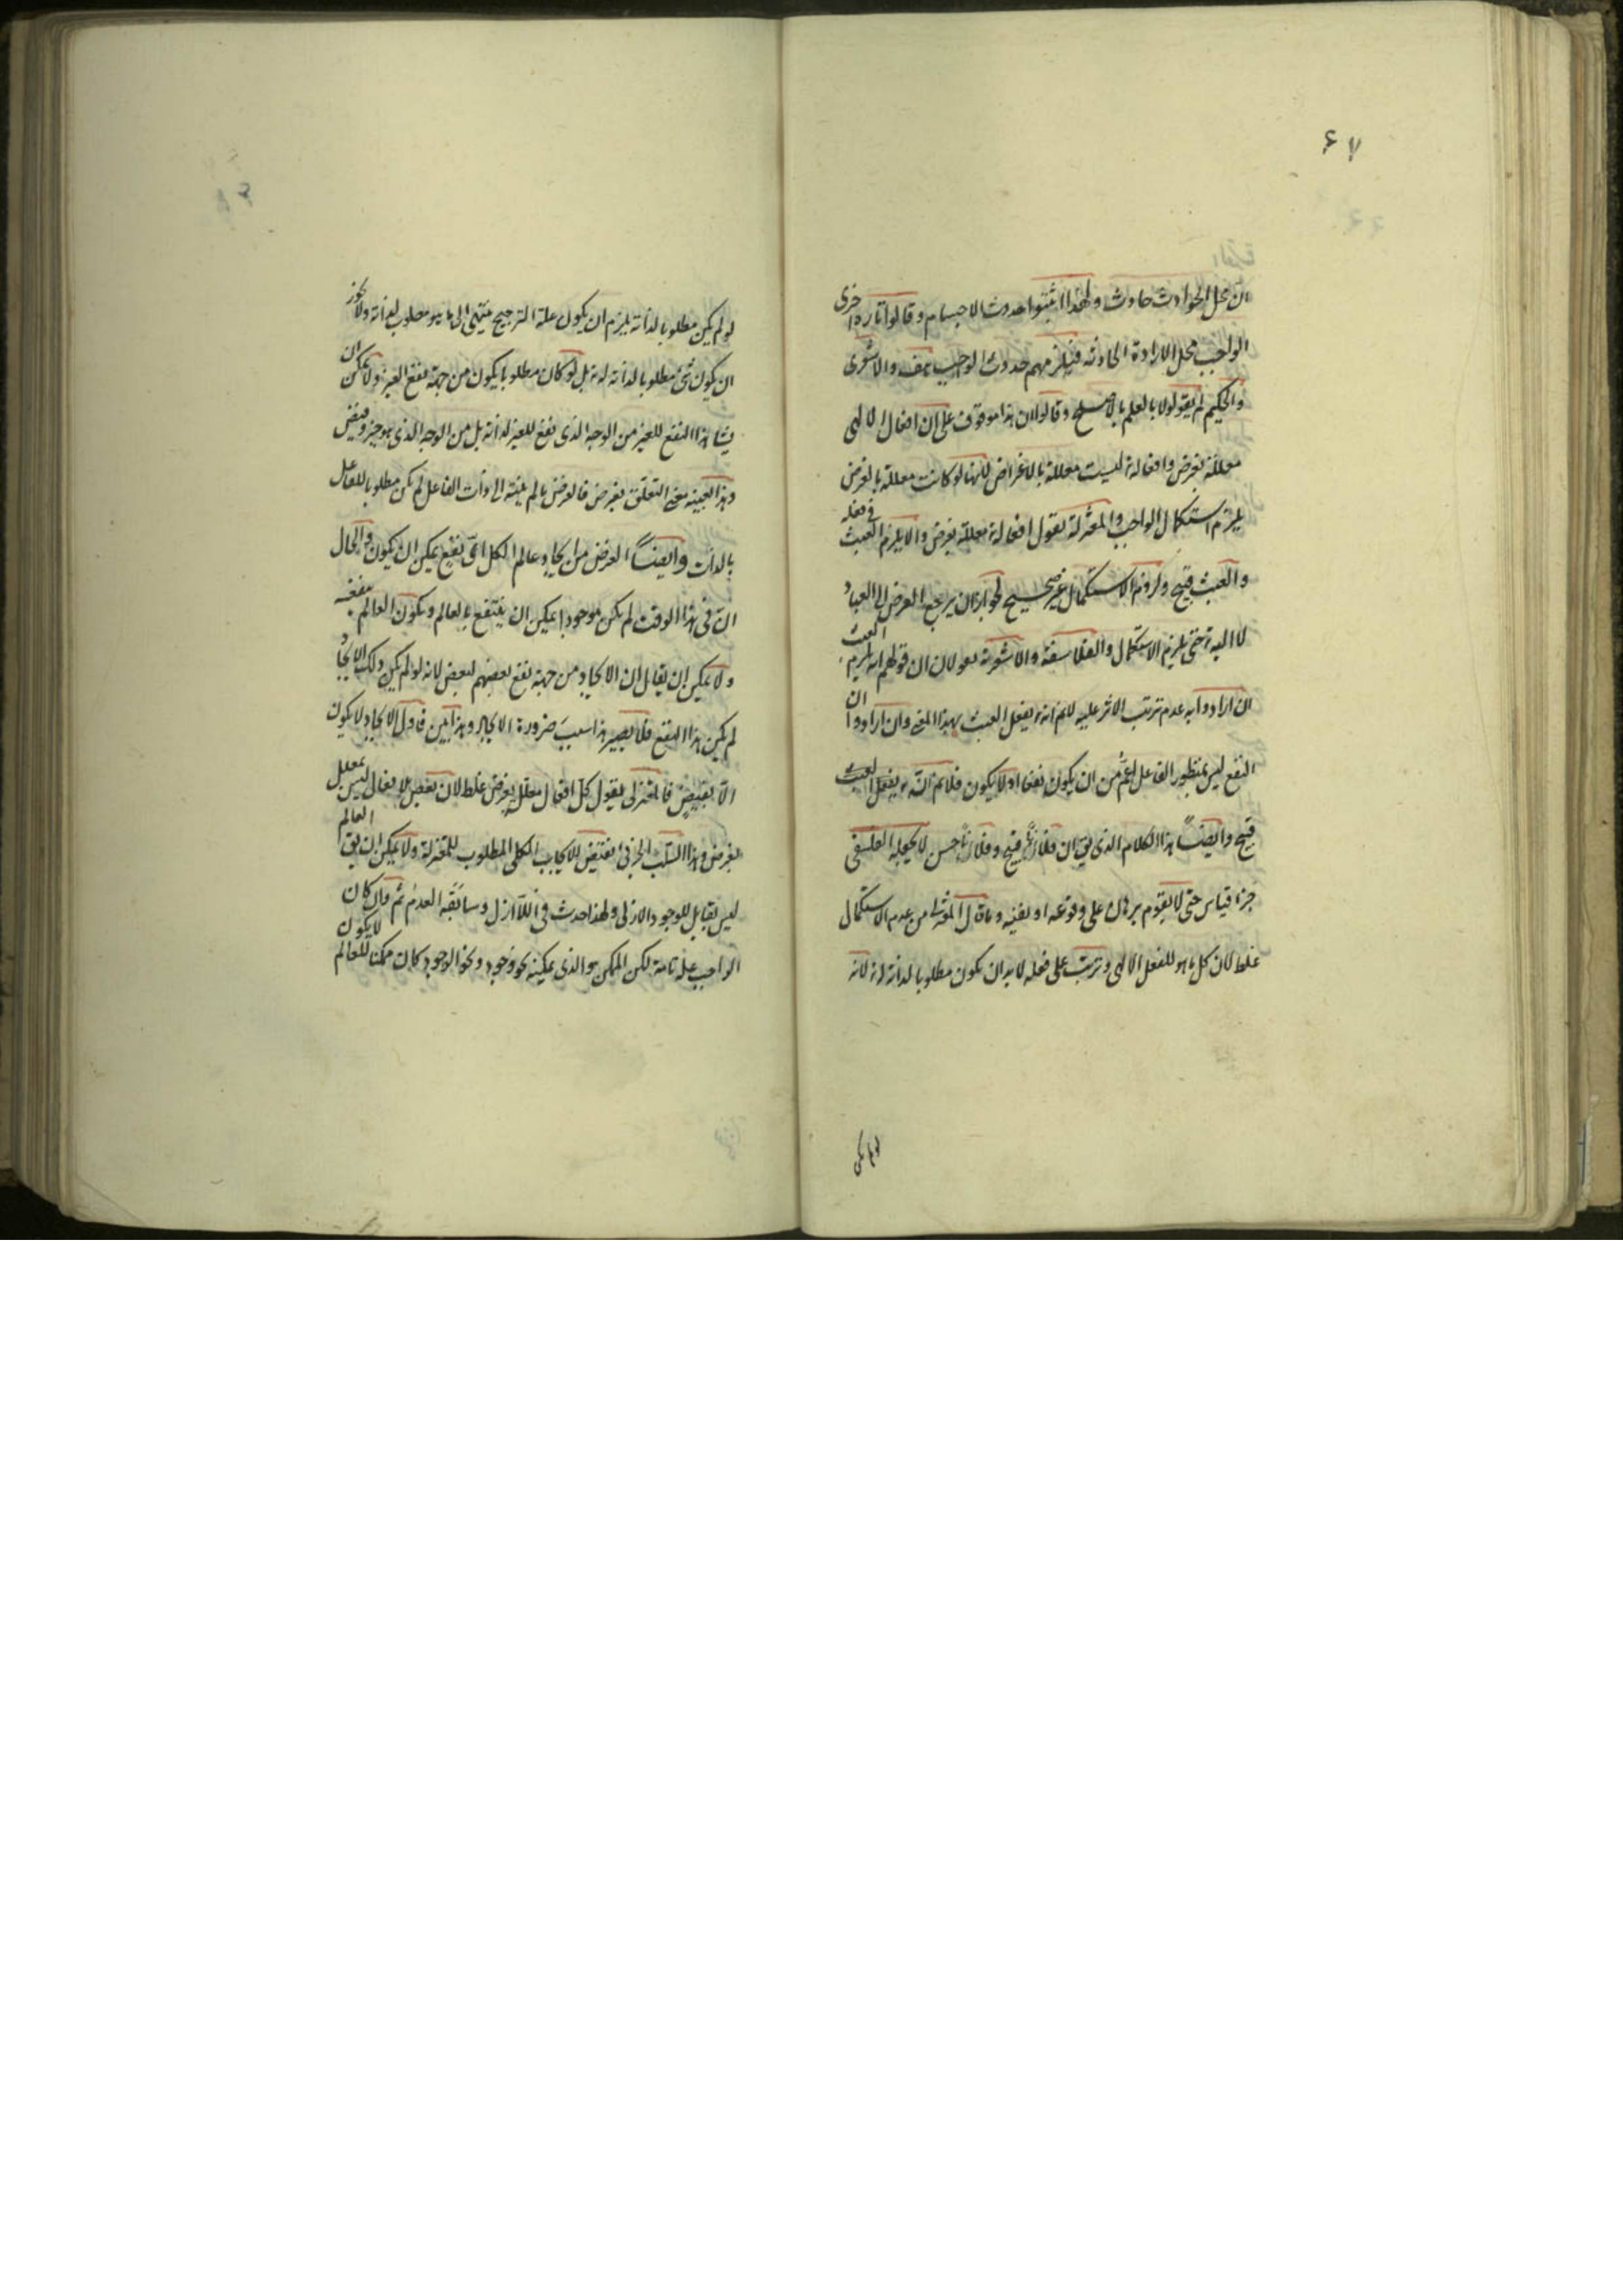 ۶۷
ان محل الحوادث حادث ولهذا اثبتوا حدوث الاجسام وقالوا تارة اخرى
الواجب محل الارادة الحادثة فيلزمهم حدوث الواجب هف والاشعرى
والحكيم لم يقولوا بالعلم بالاصلح وقالوا لان هذا موقوف على ان افعال الالهى
معللة بغرض وافعاله ليست معللة بالاغراض لانها لو كانت معللة بالغرض
يلزم استكمال الواجب والمعتزلة يقول افعاله معللة بغرض والا يلزم العبث فى فعله
والعبث قبيح ولزوم الاستكمال غير صحيح لجواز ان يرجع الغرض الى العباد
لا اليه حتى يلزم الاستكمال والفلاسفة والاشعرية يقولان ان قولهم انه يلزم العبث
ان ارادوا به عدم ترتب الاثر عليه لانم انه يفعل العبث بهذا المعنى وان ارادوا ان
النفع ليس بمنظور الفاعل اعم من ان يكون نفعا او لا يكون فلانم ان يفعل العبث
قبيح وايضا هذا الكلام الذى يق ان فلانا قبيح وفلانا حسن لا يجعله الفلسفى
جزء قياس حتى لا يقوم برهان على وقوعه او نفيه وما قال المعتزلة من عدم الاستكمال
غلط لان كل ما هو للفعل الالهى وترتب على فعله لابد ان يكون مطلوبا لذاته له لانه
لو لم يكن
لو لم يكن مطلوبا لذاته يلزم ان يكون علة الترجيح منتهى الى ما هو مطلوب لذاته ولا يجوز
ان يكون شئ مطلوبا لذاته له بل لو كان مطلوبا يكون من جهة نفع الغير ولا يمكن ان
هذا النفع للغير من الوجه الذى نفع للغير لذاته بل من الوجه الذى هو خير وفيض
وهذا بعينه معنى التعلق بغرض فالغرض ما لم ينته الى ذات الفاعل لم يكن مطلوبا للفاعل
بالذات وايضا الغرض من ايجاد عالم الكل اى نفع يمكن ان يكون والحال
ان فى هذا الوقت لم يكن موجودا يمكن ان ينتفع بالعالم ويكون العالم منفعة
ولا يمكن ان يقال ان الايجاد من جهة نفع بعضهم لبعض لانه لو لم يكن ذلك الايجاد
لم يكن هذا النفع فلا يصير هذا سبب ضرورة الايجاد وهذا بين فاول الايجاد لا يكون
الا بفيض فالمعتزلى يقول كل افعال معلل بغرض غلط لان بعض الافعال ليس بمعلل
بغرض وهذا السلب الجزئى نقيض للايجاب الكلى المطلوب للمعتزلة ولا يمكن ان يق العالم
ليس بقابل للوجود الازلى ولهذا حدث فى اللاازل وسابقه العدم ثم وان كان
الواجب علة تامة لكن الممكن هو الذى يمكنه نحو وجود ونحو الوجود كان ممكنا للعالم لا يكون